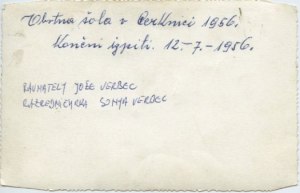 Obrtna šola v Cerknici 1956.
Končni izpiti. 12.-7.-1956.
RAVNATELJ JOŽE VERBEC
RAZREDNIČARKA SONJA VERBEC